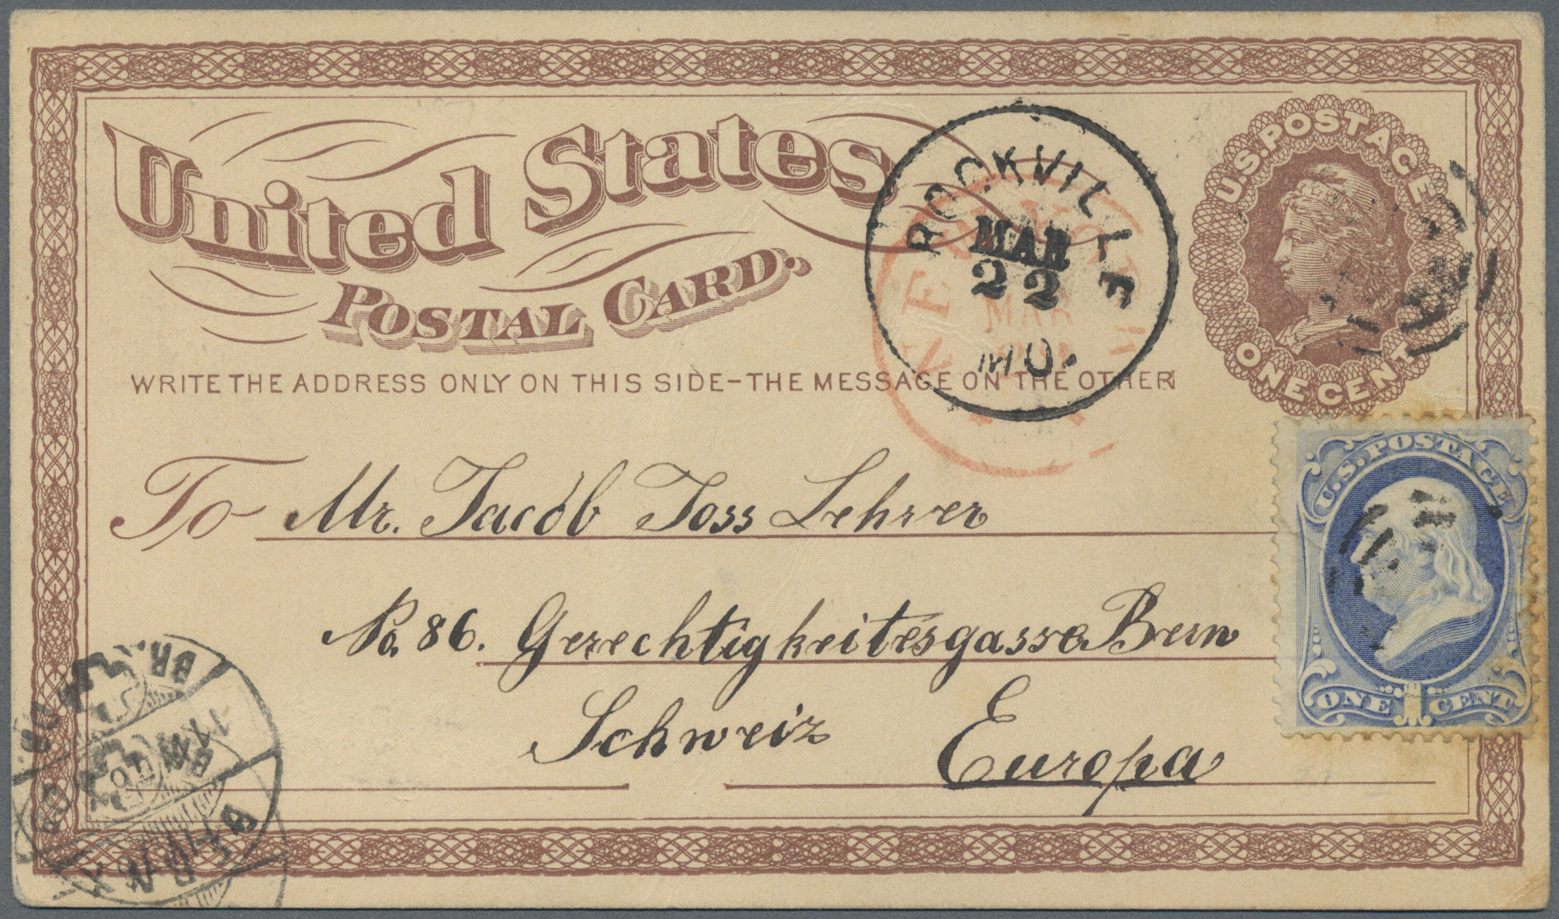 United States
POSTAL CARD.
U.S. POSTAGE
ONE CENT
ROCKVILLE
MAR
22
MO.
NEW YORK
MAR
WRITE THE ADDRESS ONLY ON THIS SIDE–THE MESSAGE ON THE OTHER
To Mr. Jacob Joss Lehrer
No. 86. Gerechtigkeitesgasse Bern
Schweiz Europa
U.S. POSTAGE
ONE 1 CENT
BERN
BR.